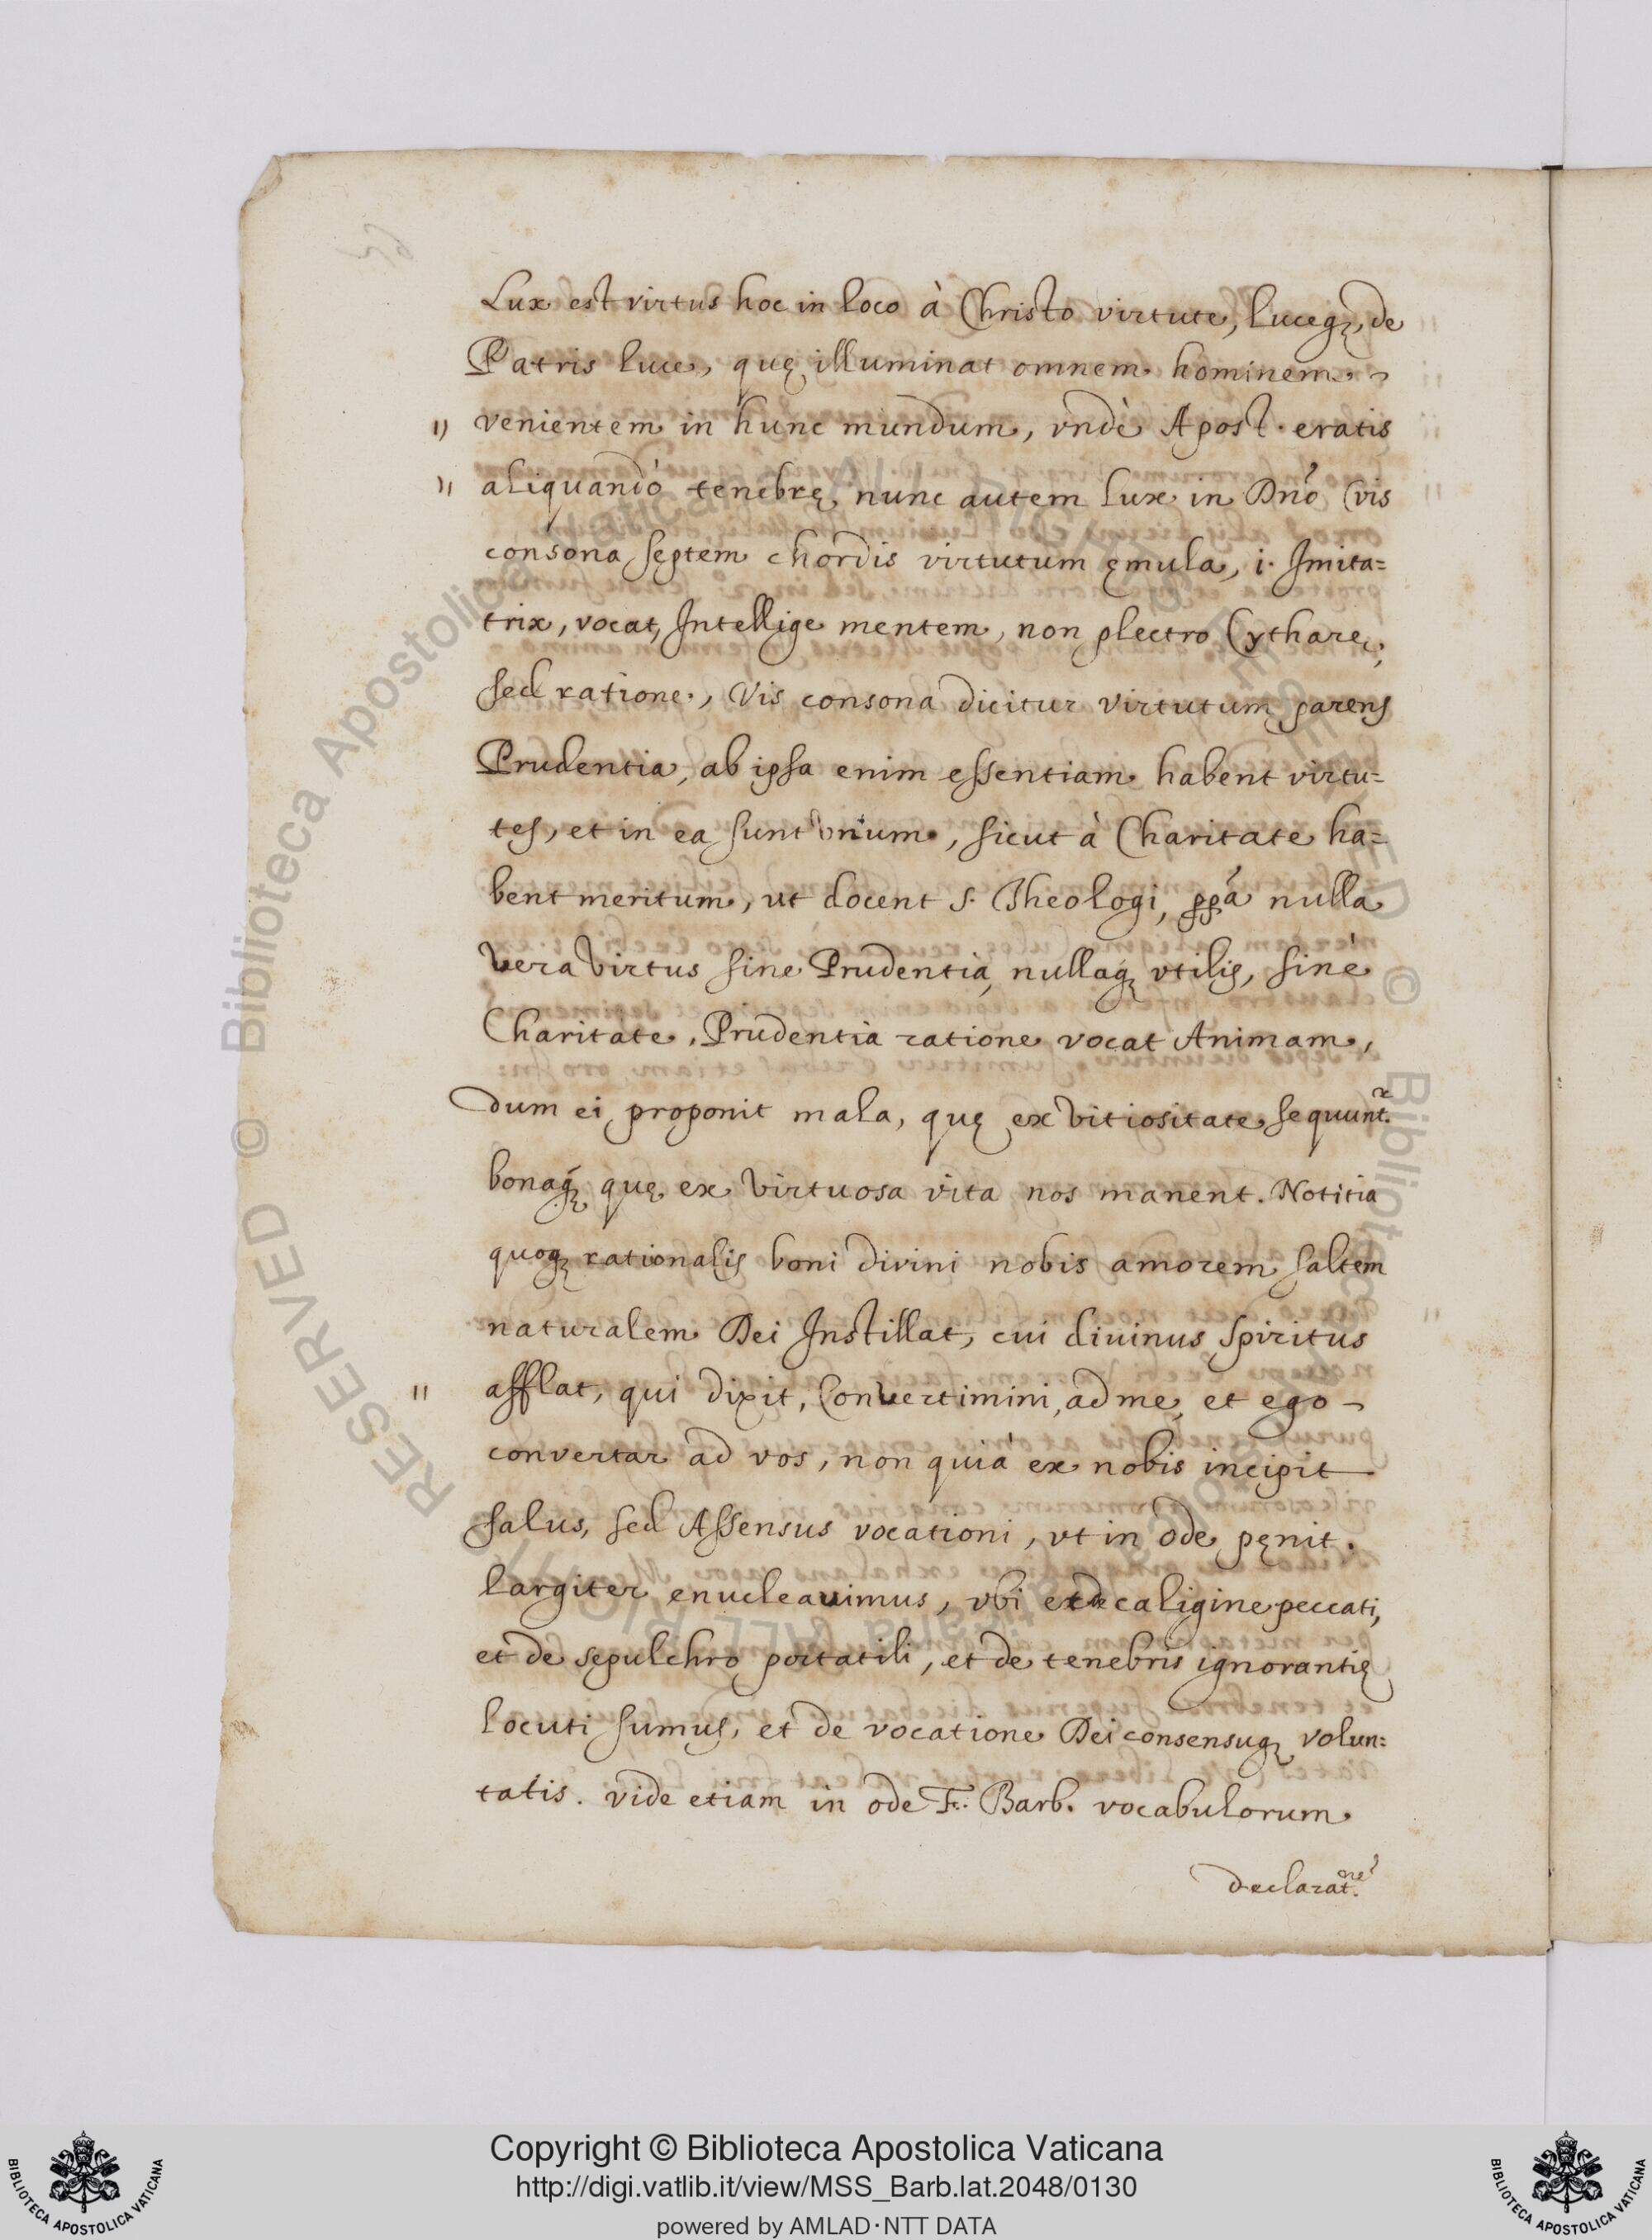 Lux est virtus hoc in loco à Christo virtute, luceq;, de
Patris luce, quę illuminat omnem hominem
" venientem in hunc mundum, vndè Apost. eratis
" aliquandò tenebrę, nunc autem lux in Dnõ (vis
consona septem chordis virtutum ęmula, i. Imita=
trix, vocat, Intellige mentem, non plectro Cytharę,
sed ratione, Vis consona dicitur virtutum parens
Prudentia, ab ipsa enim essentiam habent virtu=
tes, et in ea sunt vnum, sicut à Charitate ha=
bent meritum, ut docent S. Theologi, nulla
vera virtus sine Prudentia, nullaq; vtilis, sinè
Charitate. Prudentia ratione vocat Animam,
dum ei proponit mala, quę ex vitiositate sequunt.r
bonaq; quę ex virtuosa vita nos manent. Notitia
quoq; rationalis boni divini nobis amorem saltem
naturalem Dei Instillat, cui diuinus spiritus
" afflat, qui dixit, Convertimini, ad me, et ego
convertar ad vos, non quià ex nobis incipit
salus, sed Assensus vocationi, vt in ode pęnit.
largiter enucleauimus, vbi et de caligine peccati,
et de sepulchro portatili, et de tenebris ignorantię
locuti sumus, et de vocatione Dei consensuq; volun=
tatis. vide etiam in ode F. Barb. vocabulorum
declarat.ne
RESERVED © Biblioteca Apostolica Vaticana ALL RIGHTS RESERVED © Biblioteca Apostolica Vaticana ALL RIGHTS
Copyright © Biblioteca Apostolica Vaticana
http://digi.vatlib.it/view/MSS_Barb.lat.2048/0130
powered by AMLAD·NTT DATA
BIBLIOTECA APOSTOLICA VATICANA
BIBLIOTECA APOSTOLICA VATICANA